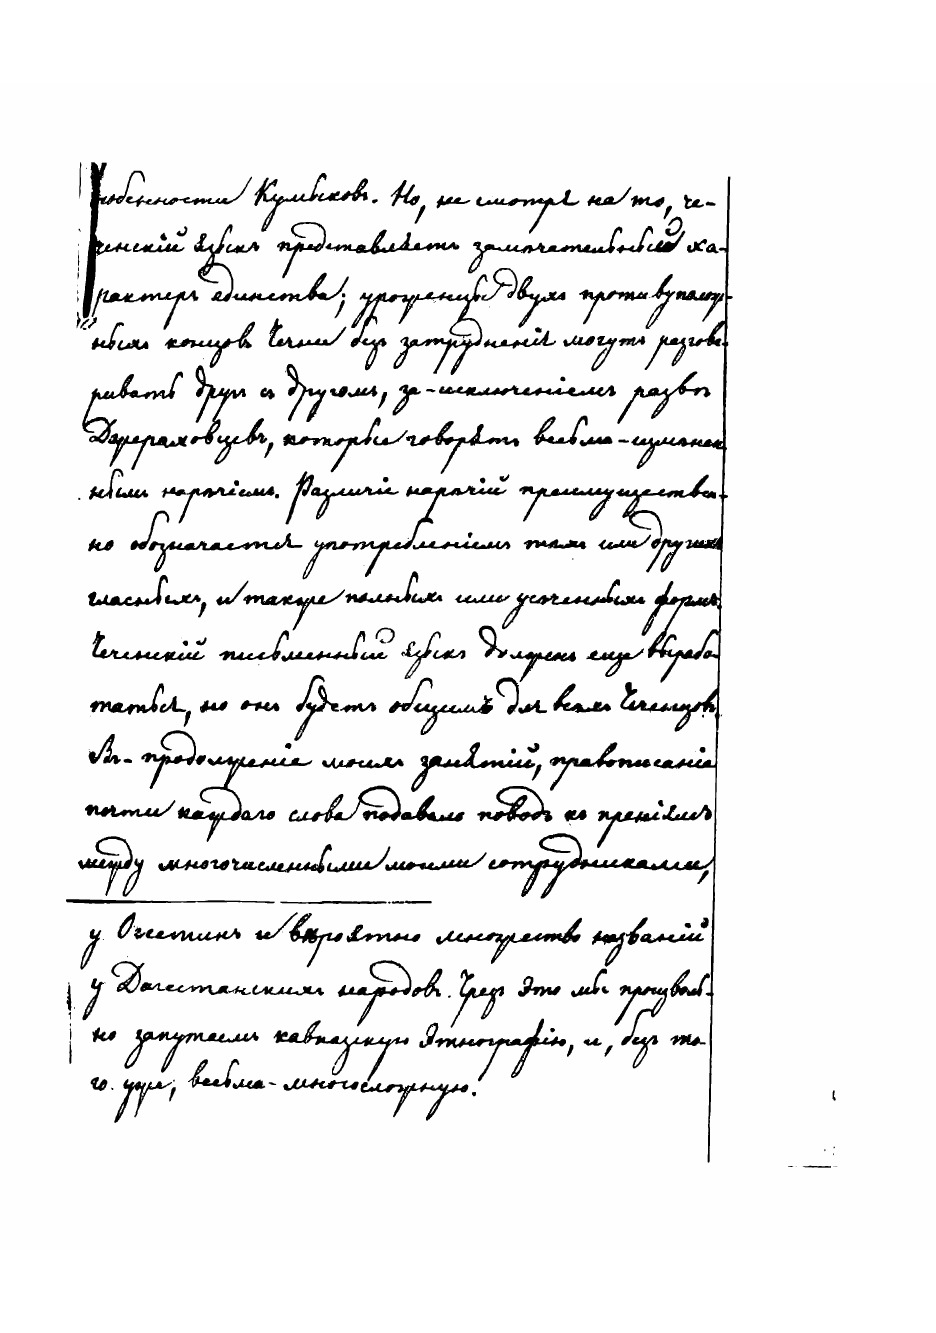 собенности Кумыковъ. Но, не смотря на то, че-
ченскій языкъ представляетъ замѣчательный ха-
рактеръ единства; уроженцы двухъ противуполож-
ныхъ концовъ Чечни безъ затрудненія могутъ разгова-
ривать другъ съ другомъ, за-исключеніемъ развѣ
которые говорятъ весьма-измѣнен-
нымъ нарѣчіемъ. Различіе нарѣчій преимуществен-
но обозначается употребленіемъ тѣхъ или другихъ
гласныхъ, и также полныхъ или усѣченныхъ формъ.
Чеченскій письменный языкъ долженъ еще вырабо-
таться, но онъ будетъ общимъ для всѣхъ Чеченцовъ.
Въ-продолженіе моихъ занятій, правописаніе
почти каждаго слова подавало поводъ къ преніямъ
между многочисленными моими сотрудниками,
у Осетинъ и вѣроятно множество названій
у Дагестанскихъ народовъ. Чрезъ это мы произволь-
но запутаемъ кавказскую этнографію, и, безъ то-
го уже, весьма-многосложную.